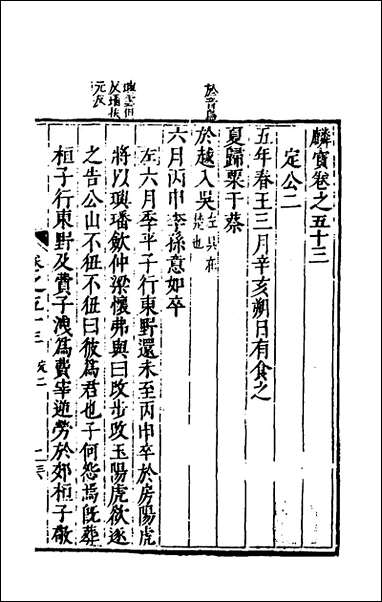 麟寶卷之五十三
定公二
五年春王三月辛亥朔日有食之
夏歸粟于蔡
於越入吳左吳在楚也
六月丙申季孫意如卒
左六月季平子行東野還未至丙申卒於房陽虎
將以璵璠歛仲梁懷弗與曰改步改玉陽虎欲逐
之告公山不狃不狃曰彼爲君也子何怨焉旣葬
桓子行東野及費子洩爲費宰逆勞於郊桓子敬
卷之五十三